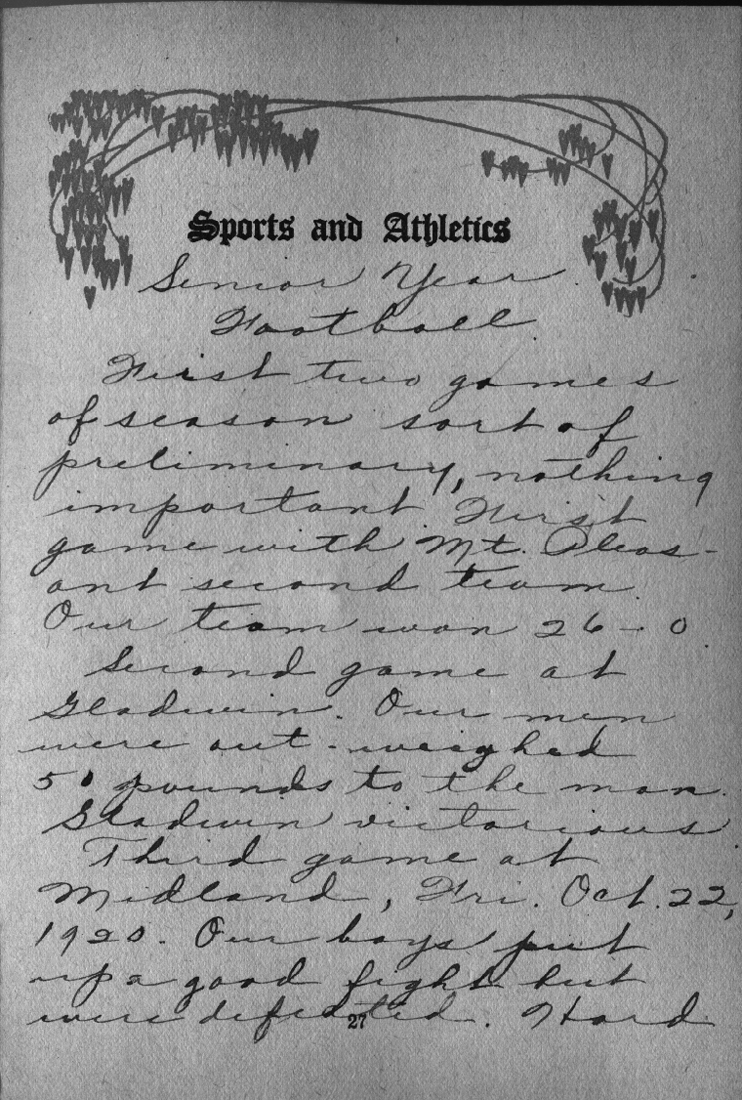 Sports and Athletics
Senior Year
Football.
First two games
of season sort of
preliminary, nothing
important. First
game with Mt. Pleas-
ant second team.
Our team won 26-0.
Second game at
Gladwin. Our men
were out-weighed
50 pounds to the man.
Gladwin victorious.
Third game at
Midland, Fri. Oct. 22,
1920. Our boys put
up a good fight but
were defeated. Hard
27